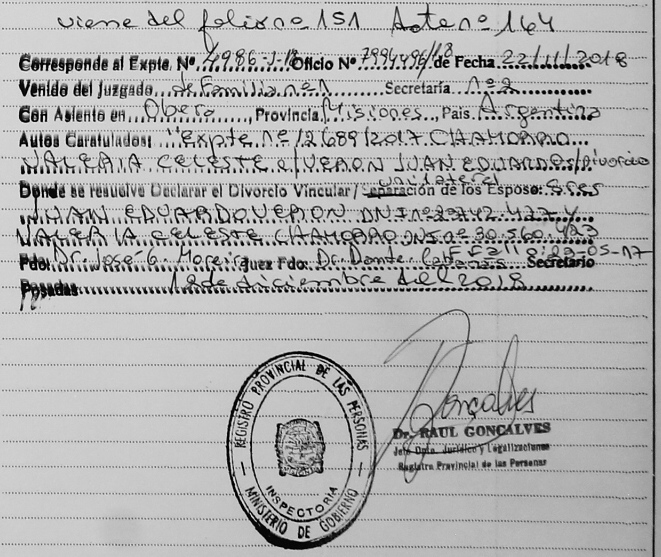 viene del folio nº 151 Acta nº 164
Corresponde al Expte. Nº 4986-J-18 Oficio Nº 7994-496/18 de Fecha 22/11/2018
Venido del Juzgado de Familia nº 1 Secretaría nº 2
Con Asiento en Obera, Provincia Misiones, País Argentina
Autos Caratulados: "Expte nº 12689/2017 CHAMORRO
VALERIA CELESTE c/ VERON JUAN EDUARDO S/Divorcio
unilateral
Donde se resuelve Declarar el Divorcio Vincular/Separación de los Esposo: Sres
JUAN EDUARDO VERON DNI nº 27.742.427 y
VALERIA CELESTE CHAMORRO DNI nº 30.560.423
Fdo: Dr. Jose G. Moreira Juez Fdo: Dr. Dante FFa 23-05-17 Secretario
Posadas 18 de diciembre del 2018
REGISTRO PROVINCIAL DE LAS PERSONAS
INSPECTORIA
MINISTERIO DE GOBIERNO
Goncalves
Dr. RAUL GONCALVES
Jefe Dpto. Jurídico y Legalizaciones
Registro Provincial de las Personas